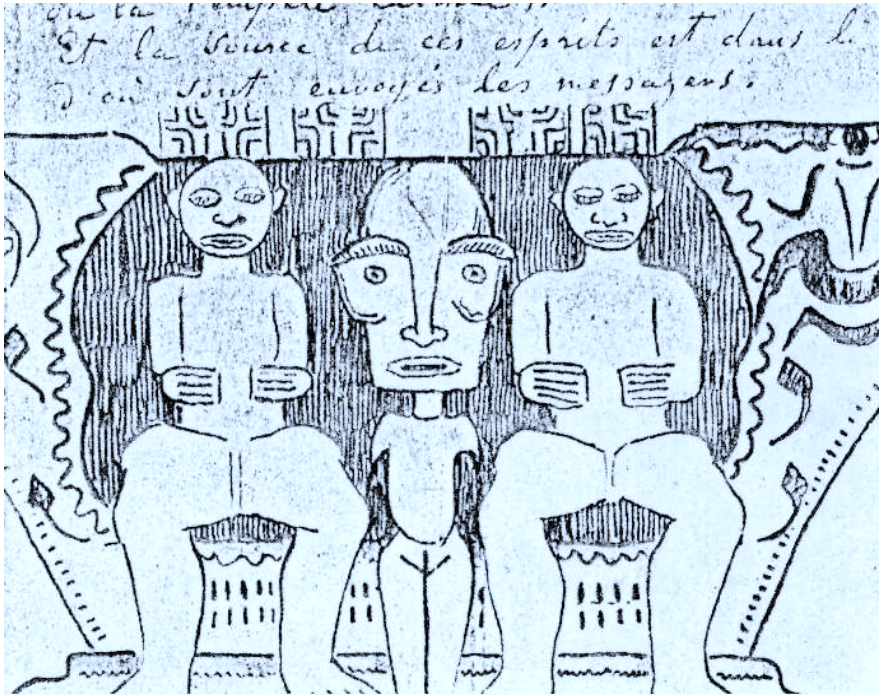 ou la
Et la Source de ces esprits est dans l
D'où sont envoyés les messagers.